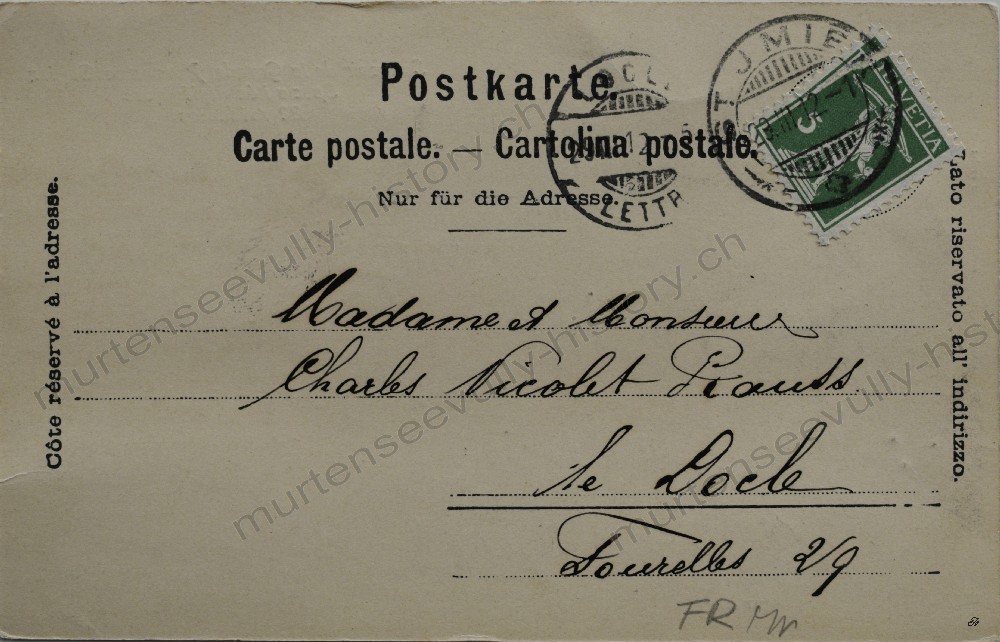 Postkarte.
Carte postale. — Cartolina postale.
Nur für die Adresse.
Côte réservé à l'adresse.
Lato riservato all' indirizzo.
ST. IMIER
29.III.12
LOCLE
LETTR
HELVETIA
5
Madame et Monsieur
Charles Nicolet
le Locle
Tourelles 29
FR
murtenseevully-history.ch
murtenseevully-history.ch
murtenseevully-history.ch